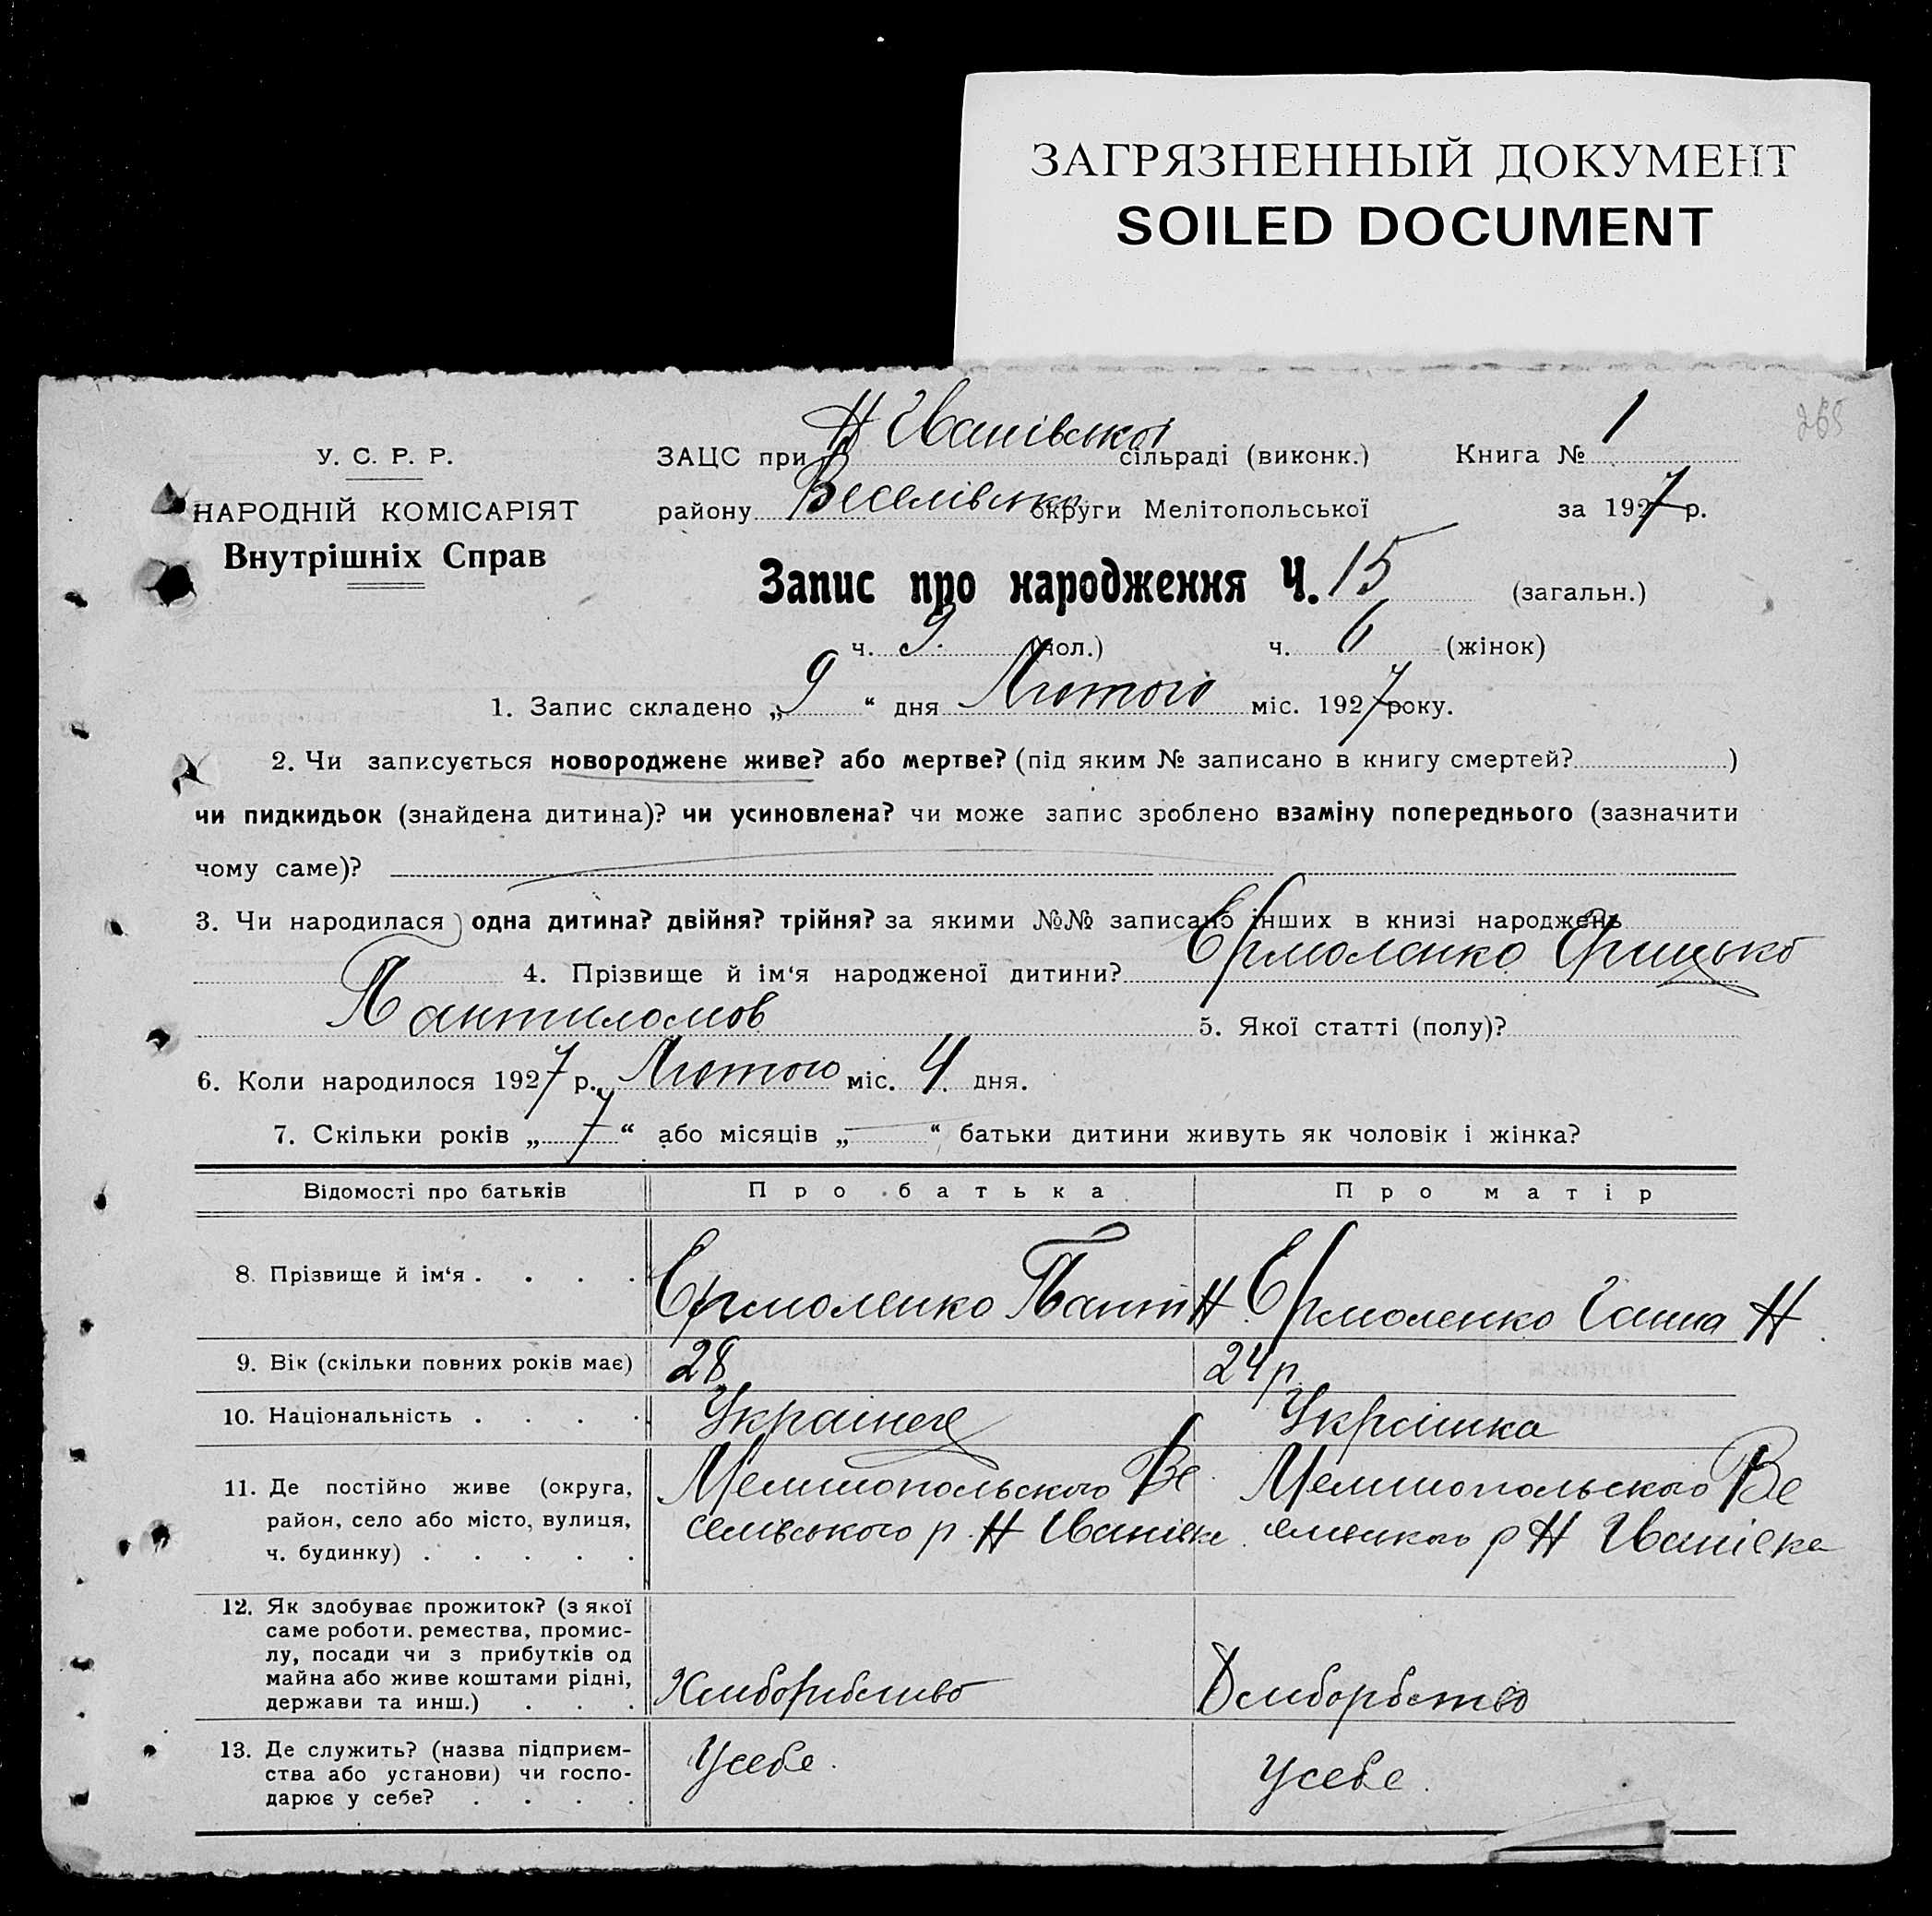 ЗАГРЯЗНЕННЫЙ ДОКУМЕНТ
SOILED DOCUMENT
265
У. С. Р. Р.
НАРОДНІЙ КОМІСАРІЯТ
Внутрішніх Справ
ЗАЦС при Н Іванівської сільраді (виконк.) Книга № 1
району Веселівська округи Мелітопольської за 1927 р.
Запис про народження Ч. 15 (загальн.)
ч. 9 (чол.) ч. 6 (жінок)
1. Запис складено „9“ дня Лютого міс. 1927 року.
2. Чи записується новороджене живе? або мертве? (під яким № записано в книгу смертей? )
чи пидкидьок (знайдена дитина)? чи усиновлена? чи може запис зроблено взаміну попереднього (зазначити
чому саме)?
3. Чи народилася одна дитина? двійня? трійня? за якими №№ записано інших в книзі народжень
4. Прізвище й ім‘я народженої дитини? Єрмоленко Грицько
Пантиломов 5. Якої статті (полу)?
6. Коли народилося 1927 р., Лютого міс. 4 дня.
7. Скільки років „7“ або місяців „—“ батьки дитини живуть як чоловік і жінка?
Відомості про батьків Про батька Про матір
8. Прізвище й ім‘я . . . . Єрмоленко Пант Н Єрмоленко Ганна Н
9. Вік (скільки повних років має) 28 24 р
10. Національність . . . . Українец Українка
11. Де постійно живе (округа, район, село або місто, вулиця, ч. будинку) . . . . . Мелитопольского Ве
селівського р. Н Іванівка Мелитопольского Ве
р Н Іванівка
12. Як здобуває прожиток? (з якої
саме роботи. ремества, промис-
лу, посади чи з прибутків од
майна або живе коштами рідні,
держави та инш.) . . .
13. Де служить? (назва підприєм-
ства або установи) чи госпо-
дарює у себе? . . . . Усебе. Усебе.